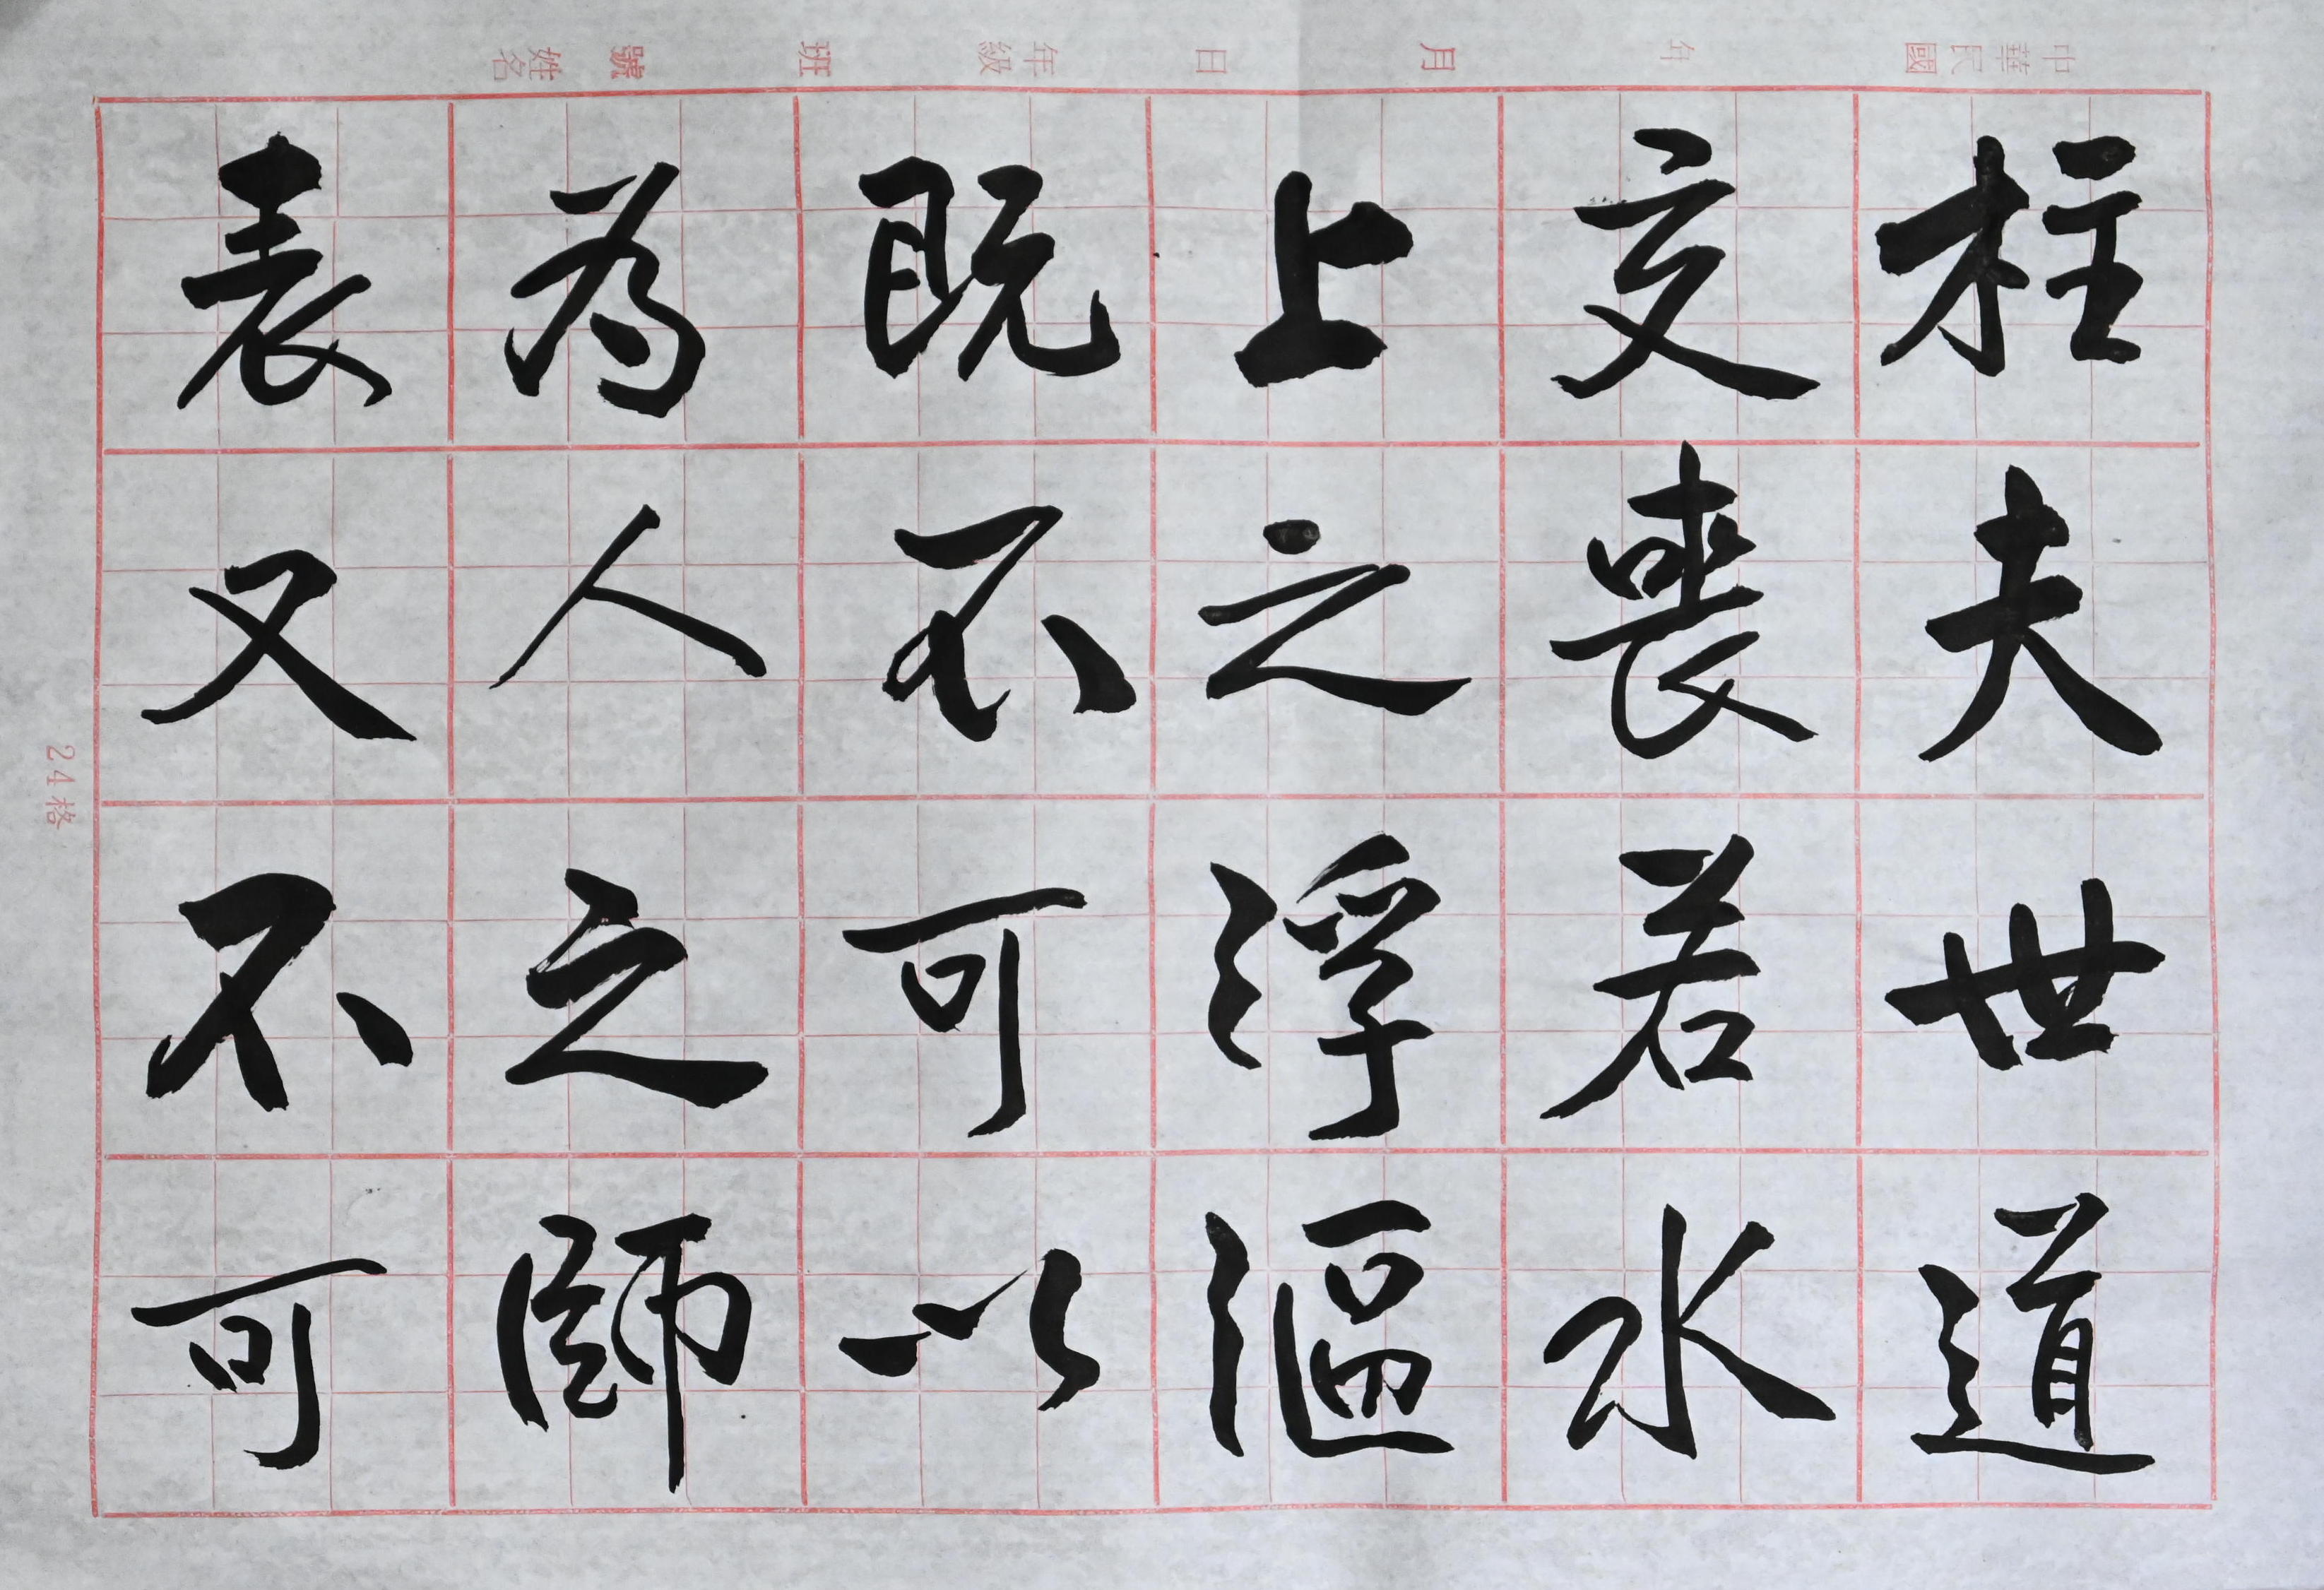 中華民國 年 月 日 年級 班 號 姓名
柱夫世道
交喪若水
上之浮漚
既不可以
為人之師
表又不可
24格